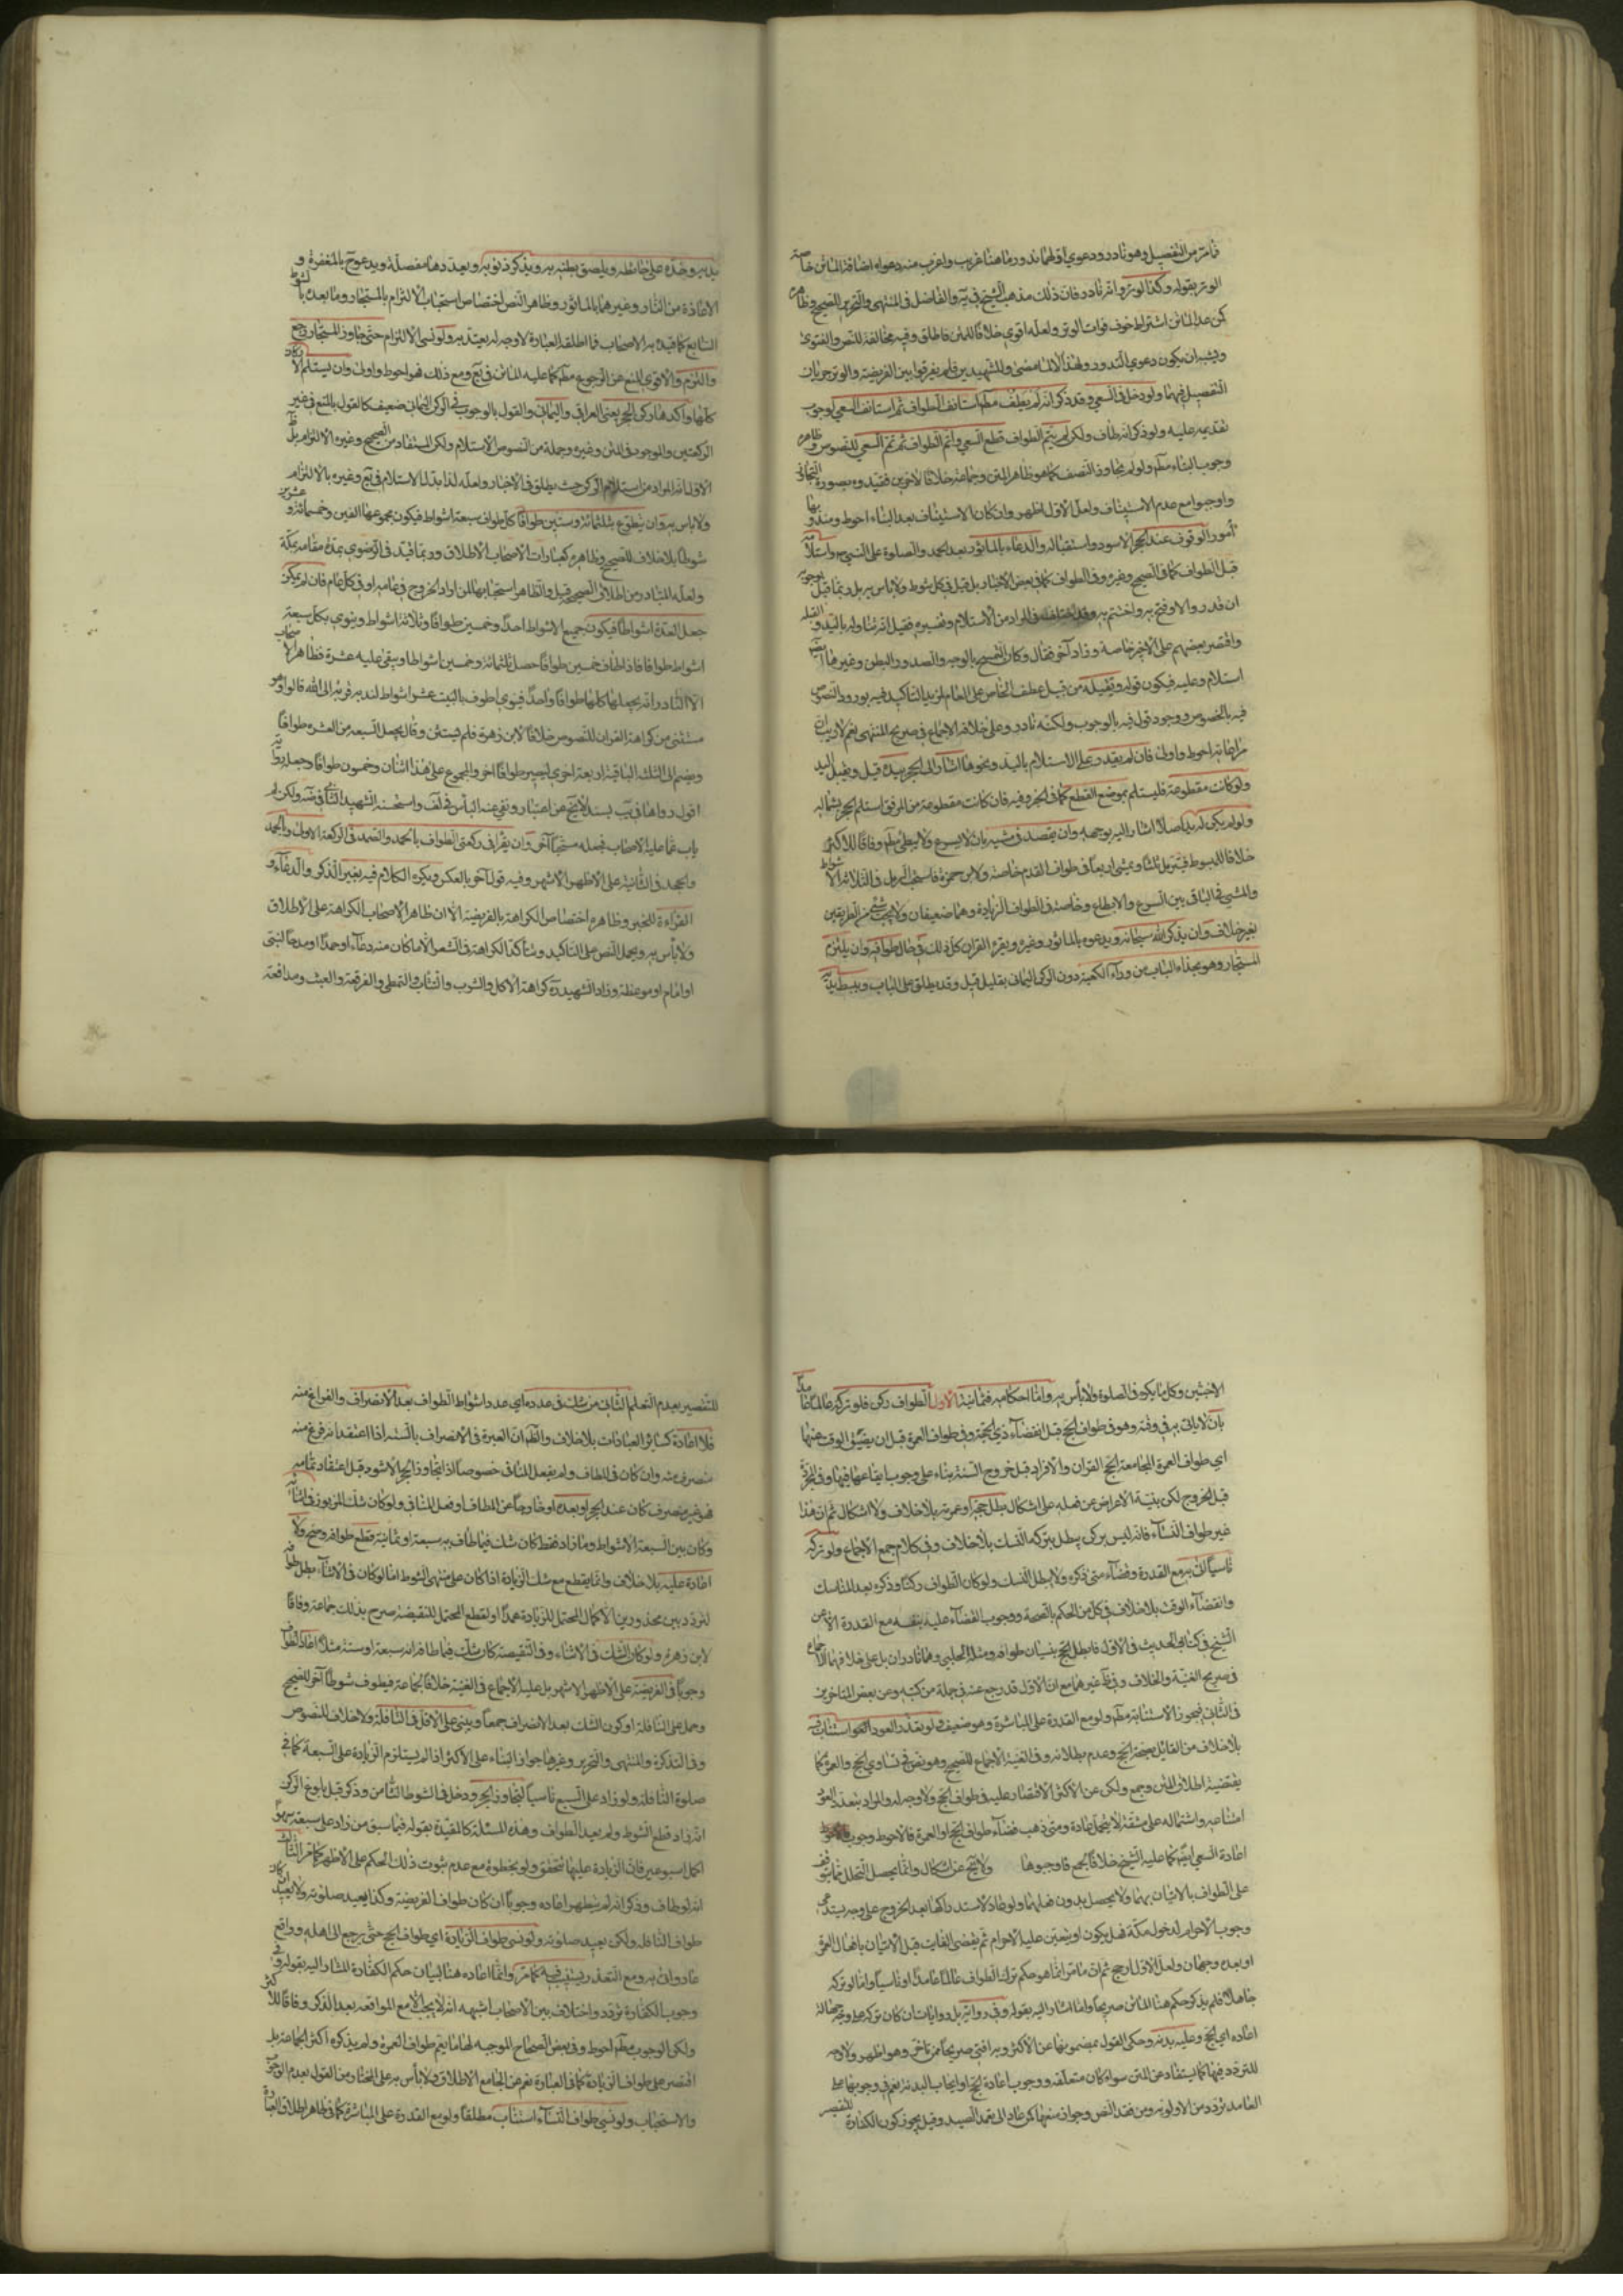 ما مر من التفصيل وهو نادر ودعوى اولهما ندور ما هنا غريب واغرب منه دعواه اضافة الماتن خاصة
الوتر بقوله وكذا الوتر وانه نادر فان ذلك مذهب الشيخ في يه والفاضل في المنتهى والتحرير للصحيح وظاهره
كن عدا الماتن اشتراط خوف فوات الوتر ولعله اقوى خلافا للمتن فاطلق وفيه مخالفة للنص والفتوى
ويشبه ان يكون دعوى الندور ولهذا الالماتن والشهيدين فلم يفرقوا بين الفريضة والوتر جريان
التفصيل فيهما ولو دخل في السعي وقد ذكر انه لم يطف مطلقا استانف الطواف ثم استانف السعي لوجوب
تقديمه عليه ولو ذكر انه طاف ولكن لم يتم الطواف قطع السعي واتم الطواف ثم تمم السعي للنصوص وظاهره
وجوب البناء مطلقا ولو لم يتجاوز النصف كما هو ظاهر المتن وجماعة خلافا لاخرين فقيدوه بصورة التجاوز
واوجبوا مع عدمه الاستيناف ولعل الاول اظهر وان كان الاستيناف بعد البناء احوط ومندوبها
امور الوقوف عند الحجر الاسود واستقباله والدعاء بالماثور بعد الحمد والصلوة على النبي واستلامه
قبل الطواف كما في الصحيح وغيره وفي الطواف كما في بعض الاخبار بل قيل في كل شوط ولا باس به بل ربما قيل بوجوبه
ان قدر والا وفتح به واختتم به وقد اختلف في المراد من الاستلام وتفسيره فقيل انه تناوله باليد والقبلة
واقتصر بعضهم على الاخير خاصة وزاد آخر فقال وكان التمسح بالوجه والصدر والبطن وغيرها ايضا
استلام وعليه فيكون قوله وتقبيله من قبيل عطف الخاص على العام لمزيد التاكيد فيه بورود النصوص
فيه بالخصوص ووجود قول فيه بالوجوب ولكنه نادر وعلى خلافه الاجماع في صريح المنتهى نعم لا ريب ان
مراعاته احوط واولى فان لم يقدر على الاستلام باليد ونحوها اشار الى الحجر بيده قيل ويقبل اليد
ولو كانت مقطوعة فليستلم بموضع القطع كما في الخبر وفيه فان كانت مقطوعة من المرفق استلم الحجر بشماله
ولو لم يكن له يد اصلا اشار اليه بوجهه وان يقتصد في مشيه بان لا يسرع ولا يبطئ مطلقا وفاقا للاكثر
خلافا للمبسوط فيرمل ثلثا ويمشي اربعا في طواف القدوم خاصة ولابن حمزة فاستحب الرمل في الثلاثة الاشواط
والمشي في الباقي بين السرع والابطاء وخاصة في الطواف الزيادة وهما ضعيفان ولا يجب شيء من الطريقين
بغير خلاف وان يذكر الله سبحانه ويدعوه بالماثور وغيره ويقرء القران كل ذلك في حال طوافه وان يلتزم
المستجار وهو بحذاء الباب من وراء الكعبة دون الركن اليماني بقليل قيل وقد يطلق على الباب ويبسط يديه
يديه وخده على حائطه ويلصق بطنه به ويذكر ذنوبه ويعددها مفصلة ويدعو ح بالمغفرة و
الاعاذة من النار وغيرهما بالماثور وظاهر النص اختصاص استحباب الالتزام بالمستجار وما بعده بالشوط
السابع كما قيده به الاصحاب فما اطلقه العبارة لا وجه له يعتد به ولو نسي الالتزام حتى جاوز المستجار رجع
والتزم والاقوى المنع عن الرجوع مطلقا كما عليه الماتن في يع ومع ذلك فهو احوط واولى وان يستلم الاركان
كلها واكدها ركن الحجر يعني العراقي واليماني والقول بالوجوب في الركن اليماني ضعيف كالقول بالمنع في غير
الركنين والموجود في المتن وغيره وجملة من النصوص الاستلام ولكن المستفاد من الصحيح وغيره الالتزام بل ظ
الاول انه المراد من استلام الركن حيث يطلق في الاخبار ولعله لذا بدل الاستلام في يع وغيره بالالتزام
ولا باس به وان يتطوع بثلثمائة وستين طوافا كل طواف سبعة اشواط فيكون مجموعها الفين وخمسمائة وعشرين
شوطا بلا خلاف للصحيح وظاهره كعبارات الاصحاب الاطلاق وربما قيد في الرضوي بمدة مقامه بمكة
ولعله المتبادر من اطلاق الصحيح قيل والظاهر استحبابها لمن اراد الخروج في عامه او في كل عام فان لم يمكن
جعل العدة اشواطا فيكون جميع الاشواط احدا وخمسين طوافا وثلاثة اشواط وينوي بكل سبعة
اشواط طوافا فاذا طاف خمسين طوافا حصل ثلثمائة وخمسين اشواطا ويبقى عليه عشرة فظاهر الاصحاب
الا النادر انه يجعلها كلها طوافا واحدا فينوي اطوف بالبيت عشر اشواط لندبه قربة الى الله قالوا وهو
مستثنى من كراهة القران للنصوص خلافا لابن زهرة فلم يستثن وقال يجعل السبعة من العشرة طوافا
ويضم الى الثلث الباقية اربعة اخرى ليصير طوافا اخر والمجموع على هذا اثنان وخمسون طوافا وجعله رواية
اقول رواها في يب بسند لا يخ عن اعتبار ونفى عنه الباس في لف واستحسنه الشهيد الثاني في ضه ولكن لم
يات بما عليه الاصحاب فجعله مستحبا آخر وان يقرأ في ركعتي الطواف بالحمد والصمد في الركعة الاولى والحمد
والجحد في الثانية على الاظهر الاشهر وفيه قول آخر بالعكس ويكره الكلام فيه بغير الذكر والدعاء و
القراءة للخبر وظاهره اختصاص الكراهة بالفريضة الا ان ظاهر الاصحاب الكراهة على الاطلاق
ولا بأس به ويحمل النص على التاكيد ويتأكد الكراهة في الشعر الا ما كان منه دعاء او حمدا او مدحا لنبي
او امام او موعظة وزاد الشهيد ره كراهة الاكل والشرب والتثاب والتمطي والفرقعة والعبث ومدافعة
الاخبثين وكل ما يكره في الصلوة ولا بأس به واما احكامه فثمانية الاول الطواف ركن فلو تركه عالما عامدا
بان لا ياتي به في وقته وهو في طواف الحج قبل انقضاء ذي الحجة وفي طواف العمرة قبل ان يضيق الوقت عنها
اي طواف العمرة المجامعة لحج القران والافراد قبل خروج السنة بناء على وجوب ايقاعها فيها وفي المجردة
قبل الخروج لكن بنية الاعراض عن فعله على اشكال بطل حجه او عمرته بلا خلاف ولا اشكال ثم ان هذا
غير طواف النساء فانه ليس بركن يبطل بتركه النسك بلا خلاف وفي كلام جمع الاجماع ولو تركه
ناسيا اتى به مع القدرة وقضاء متى ذكره ولا يبطل النسك ولو كان الطواف ركنا وذكره بعد المناسك
وانقضاء الوقت بلا خلاف في كل من الحكم بالصحة ووجوب القضاء عليه بنفسه مع القدرة الا عن
الشيخ في كتابي الحديث في الاول فابطل الحج بنسيان طوافه ومثله الحلبي وهما نادران بل على خلافهما الاجماع
في صريح الغنية والخلاف وفي ظ غيرهما مع ان الاول قد رجع عنه في جملة من كتبه وعن بعض المتاخرين
في الثاني فيجوز الاستنابة مطلقا ولو مع القدرة على المباشرة وهو ضعيف ولو تعذر العود العود استناب فيه
بلا خلاف من القائل بصحة الحج وعدم بطلانه وفي الغنية الاجماع للصحيح وهو نص في تساوي الحج والعمرة كما
يقتضيه اطلاق المتن وجمع ولكن عن الاكثر الاقتصار عليه في طواف الحج ولا وجه له والمراد بتعذر العود
امتناعه واشتماله على مشقة لا يتحمل عادة ومتى ذهب قضاء طواف الحج او العمرة فالاحوط وجوب
اعادة السعي ايضا كما عليه الشيخ خلافا لجمع فاوجبوها ولا يخ عن اشكال وانما يحصل التحلل بما يتوقف
على الطواف بالاتيان بهما ولا يحصل بدون فعلهما ولو عاد لاستدراكهما بعد الخروج على وجه يستدعي
وجوب الاحرام لدخول مكة فهل يكون او يتعين عليه الاحرام ثم يقضي الفايت قبل الاتيان بافعال العمرة
او بعده وجهان ولعل الاول ارجح ثم ان ما مر انما هو حكم ترك الطواف عالما عامدا او ناسيا واما لو تركه
جاهلا فلم يذكر حكمه هنا الماتن صريحا وانما اشار اليه بقوله وفي رواية بل روايات ان كان تركه على وجه جهالة
اعاده اي الحج وعليه بدنة وحكي القول بمضمونها عن الاكثر وبه افتى صريحا من تاخر وهو اظهر ولا وجه
للتردد فيها كما يستفاد من المتن سواء كان متعلقه ووجوب اعادة الحج او ايجاب البدنة نعم في وجوبها على
العامد تردد من الاولوية ومن فقد النص وجواز منعها كمن عاد الى تعمد الصيد وقيل يجوز كون الكفارة للتقصير
للتقصير بعدم التعلم الثاني من شك في عدده اي عدد اشواط الطواف بعد الانصراف والفراغ منه
فلا اعادة كسائر العبادات بلا خلاف والظ ان العبرة في الانصراف بالنية اذا اعتقد انه فرغ منه
منصرف منه وان كان في المطاف ولم يفعل المنافي خصوصا اذا تجاوز الحجر الاسود قبل اعتقاد تمامه
فهو غير منصرف كان عند الحجر او بعده او خارجا عن المطاف او فعل المنافي ولو كان شك المزبور في اثنائه
وكان بين السبعة الاشواط وما زاد فقط كان شك فيما طاف به سبعة او ثمانية قطع طوافه وصح ولا
اعادة عليه بلا خلاف وانما يقطع مع شك الزيادة اذا كان على منتهى الشوط اما لو كان في الاثناء بطل طوافه
لتردده بين محذورين الاكمال المحتمل للزيادة عمدا او القطع المحتمل للنقيصة صرح بذلك جماعة وفاقا
لابن زهرة ولو كان الشك في الاثناء وفي النقيصة كان شك فيما طافه انه سبعة او ستة مثلا اعاد الطواف
وجوبا في الفريضة على الاظهر الاشهر بل عليه الاجماع في الغنية خلافا لجماعة فيطوف شوطا آخر للصحيح
وحمل على النافلة او كون الشك بعد الانصراف جمعا ويبني على الاقل في النافلة ولا خلاف للنصوص
وفي التذكرة والمنتهى والتحرير وغيرها جواز البناء على الاكثر اذا لم يستلزم الزيادة على السبعة كما في
صلوة النافلة ولو زاد على السبع ناسيا لتجاوز الحجر ودخل في الشوط الثامن وذكر قبل بلوغ الركن
انه زاد قطع الشوط ولم يعد الطواف وهذه المسئلة كالمقيدة بقوله فيما سبق من زاد على سبعة سهوا
اكمل اسبوعين فان الزيادة عليها تتحقق ولو بخطوة مع عدم ثبوت ذلك الحكم على الاظهر كما مر الثالث
انه لو طاف وذكر انه لم يتطهر اعاده وجوبا ان كان طواف الفريضة وكذا يعيد صلوته ولا يعيد
طواف النافلة ولكن يعيد صلوته ولو نسي طواف الزيارة اي طواف الحج حتى رجع الى اهله وواقع
عاد واتى به ومع التعذر يستنيب فيه كما مر وانما اعاده هنا لبيان حكم الكفارة المشار اليه بقوله وفي
وجوب الكفارة تردد واختلاف بين الاصحاب اشبهه انه لا يجب الا مع المواقعة بعد الذكر وفاقا للاكثر
ولكن الوجوب مطلقا احوط وفي بعض الصحاح الموجبة لها ما يعم طواف العمرة ولم يذكره اكثر الجماعة بل
اقتصر على طواف الزيارة كما في العبارة نعم عن الجامع الاطلاق ولا بأس به على المختار من القول بعدم الوجوب
والاستحباب ولو نسي طواف النساء استناب مطلقا ولو مع القدرة على المباشرة كما في ظاهر اطلاق العبارة